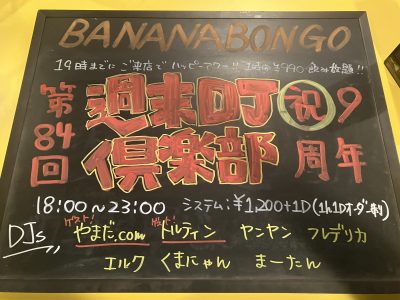 BANANABONGO
19時までにご来店でハッピーアワー!! 1時間¥990飲み放題!!
第84回 週末DJ倶楽部 祝9周年
18:00～23:00 システム:¥1,200+1D(1h1Dオーダー制)
DJs ゲスト! やまだ.com ゲスト! トルティン ヤンヤン フレデリカ
エルク くまにゃん まーたん